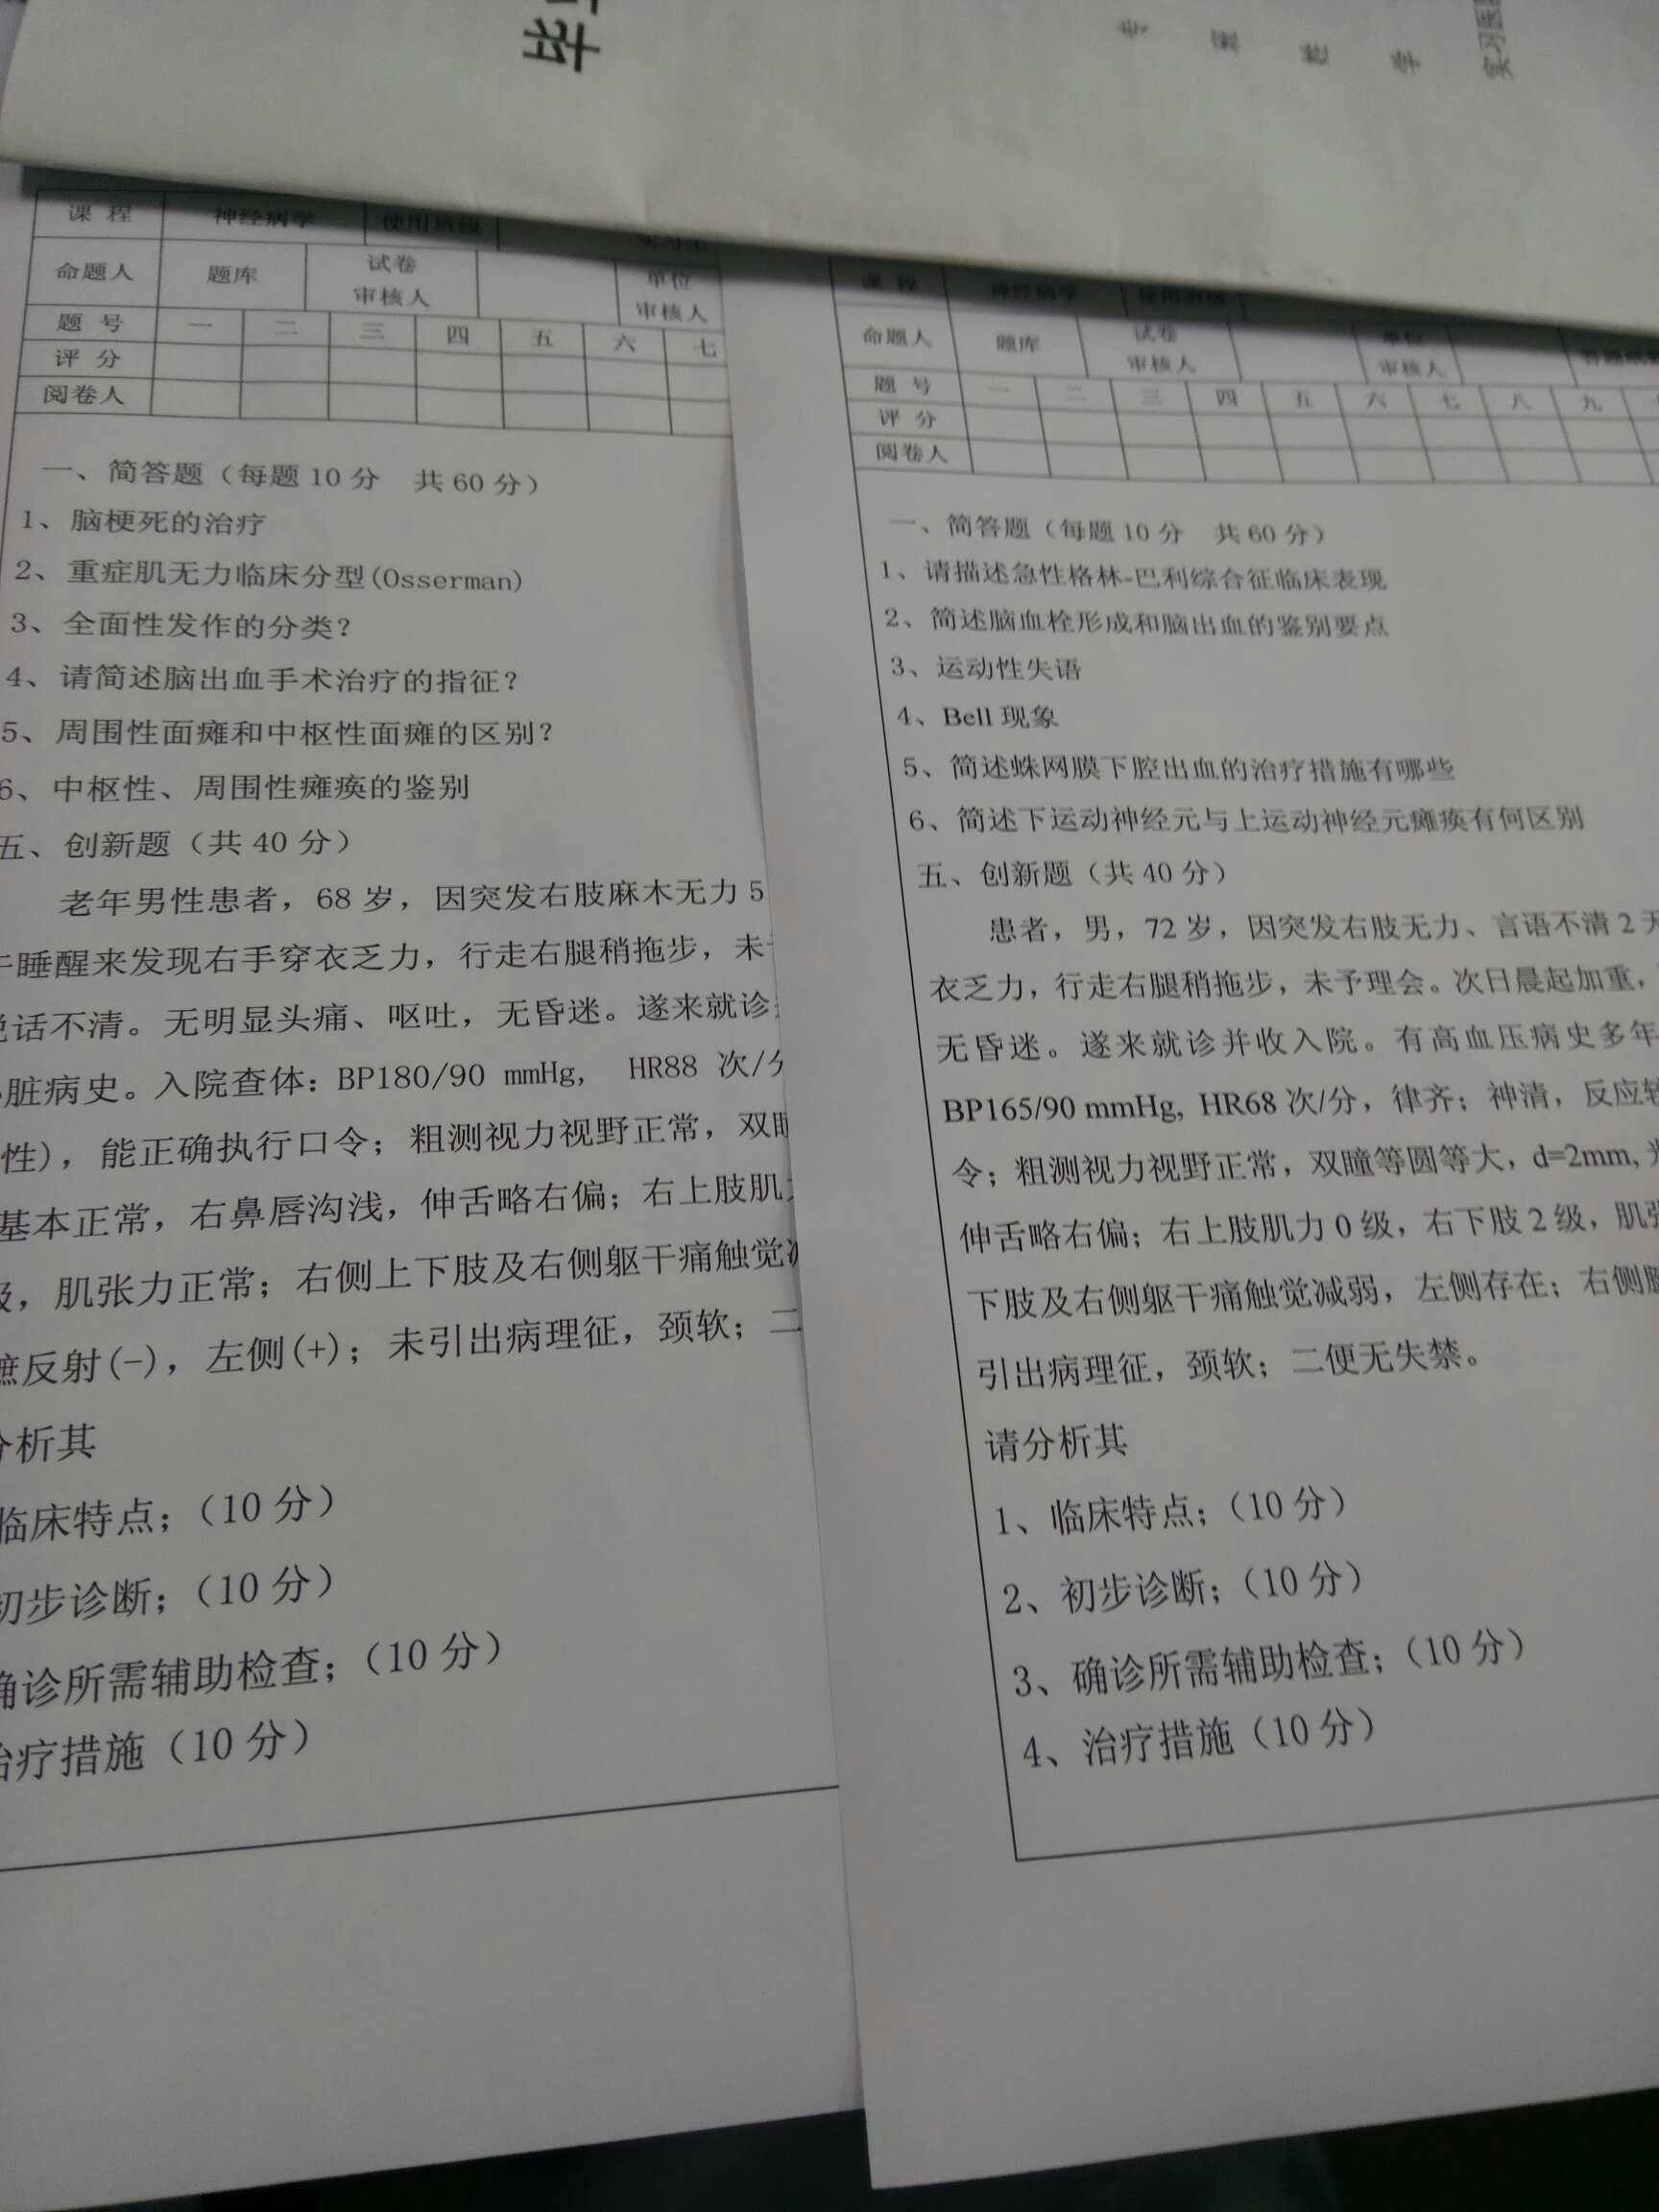 实习医
课 程 神经病学 使用班级
命题人 题库 试卷审核人 单位审核人
题 号 一 二 三 四 五 六 七
评 分
阅卷人
一、简答题（每题10分 共60分）
1、脑梗死的治疗
2、重症肌无力临床分型(Osserman)
3、全面性发作的分类?
4、请简述脑出血手术治疗的指征?
5、周围性面瘫和中枢性面瘫的区别?
6、中枢性、周围性瘫痪的鉴别
五、创新题（共40分）
老年男性患者，68岁，因突发右肢麻木无力5
睡醒来发现右手穿衣乏力，行走右腿稍拖步，未
话不清。无明显头痛、呕吐，无昏迷。遂来就诊
脏病史。入院查体：BP180/90 mmHg, HR88 次/分
性)，能正确执行口令；粗测视力视野正常，双瞳
基本正常，右鼻唇沟浅，伸舌略右偏；右上肢肌
级，肌张力正常；右侧上下肢及右侧躯干痛触觉
反射(-)，左侧(+)；未引出病理征，颈软；二
分析其
临床特点；（10分）
初步诊断；（10分）
确诊所需辅助检查；（10分）
治疗措施（10分）
课 程 神经病学 使用班级
命题人 题库 试卷审核人 单位审核人
题 号 一 二 三 四 五 六 七 八 九
评 分
阅卷人
一、简答题（每题10分 共60分）
1、请描述急性格林-巴利综合征临床表现
2、简述脑血栓形成和脑出血的鉴别要点
3、运动性失语
4、Bell 现象
5、简述蛛网膜下腔出血的治疗措施有哪些
6、简述下运动神经元与上运动神经元瘫痪有何区别
五、创新题（共40分）
患者，男，72岁，因突发右肢无力、言语不清2天
衣乏力，行走右腿稍拖步，未予理会。次日晨起加重，
无昏迷。遂来就诊并收入院。有高血压病史多年
BP165/90 mmHg, HR68 次/分，律齐；神清，反应
令；粗测视力视野正常，双瞳等圆等大，d=2mm,
伸舌略右偏；右上肢肌力0级，右下肢2级，肌张
下肢及右侧躯干痛触觉减弱，左侧存在；右侧
引出病理征，颈软；二便无失禁。
请分析其
1、临床特点；（10分）
2、初步诊断；（10分）
3、确诊所需辅助检查；（10分）
4、治疗措施（10分）